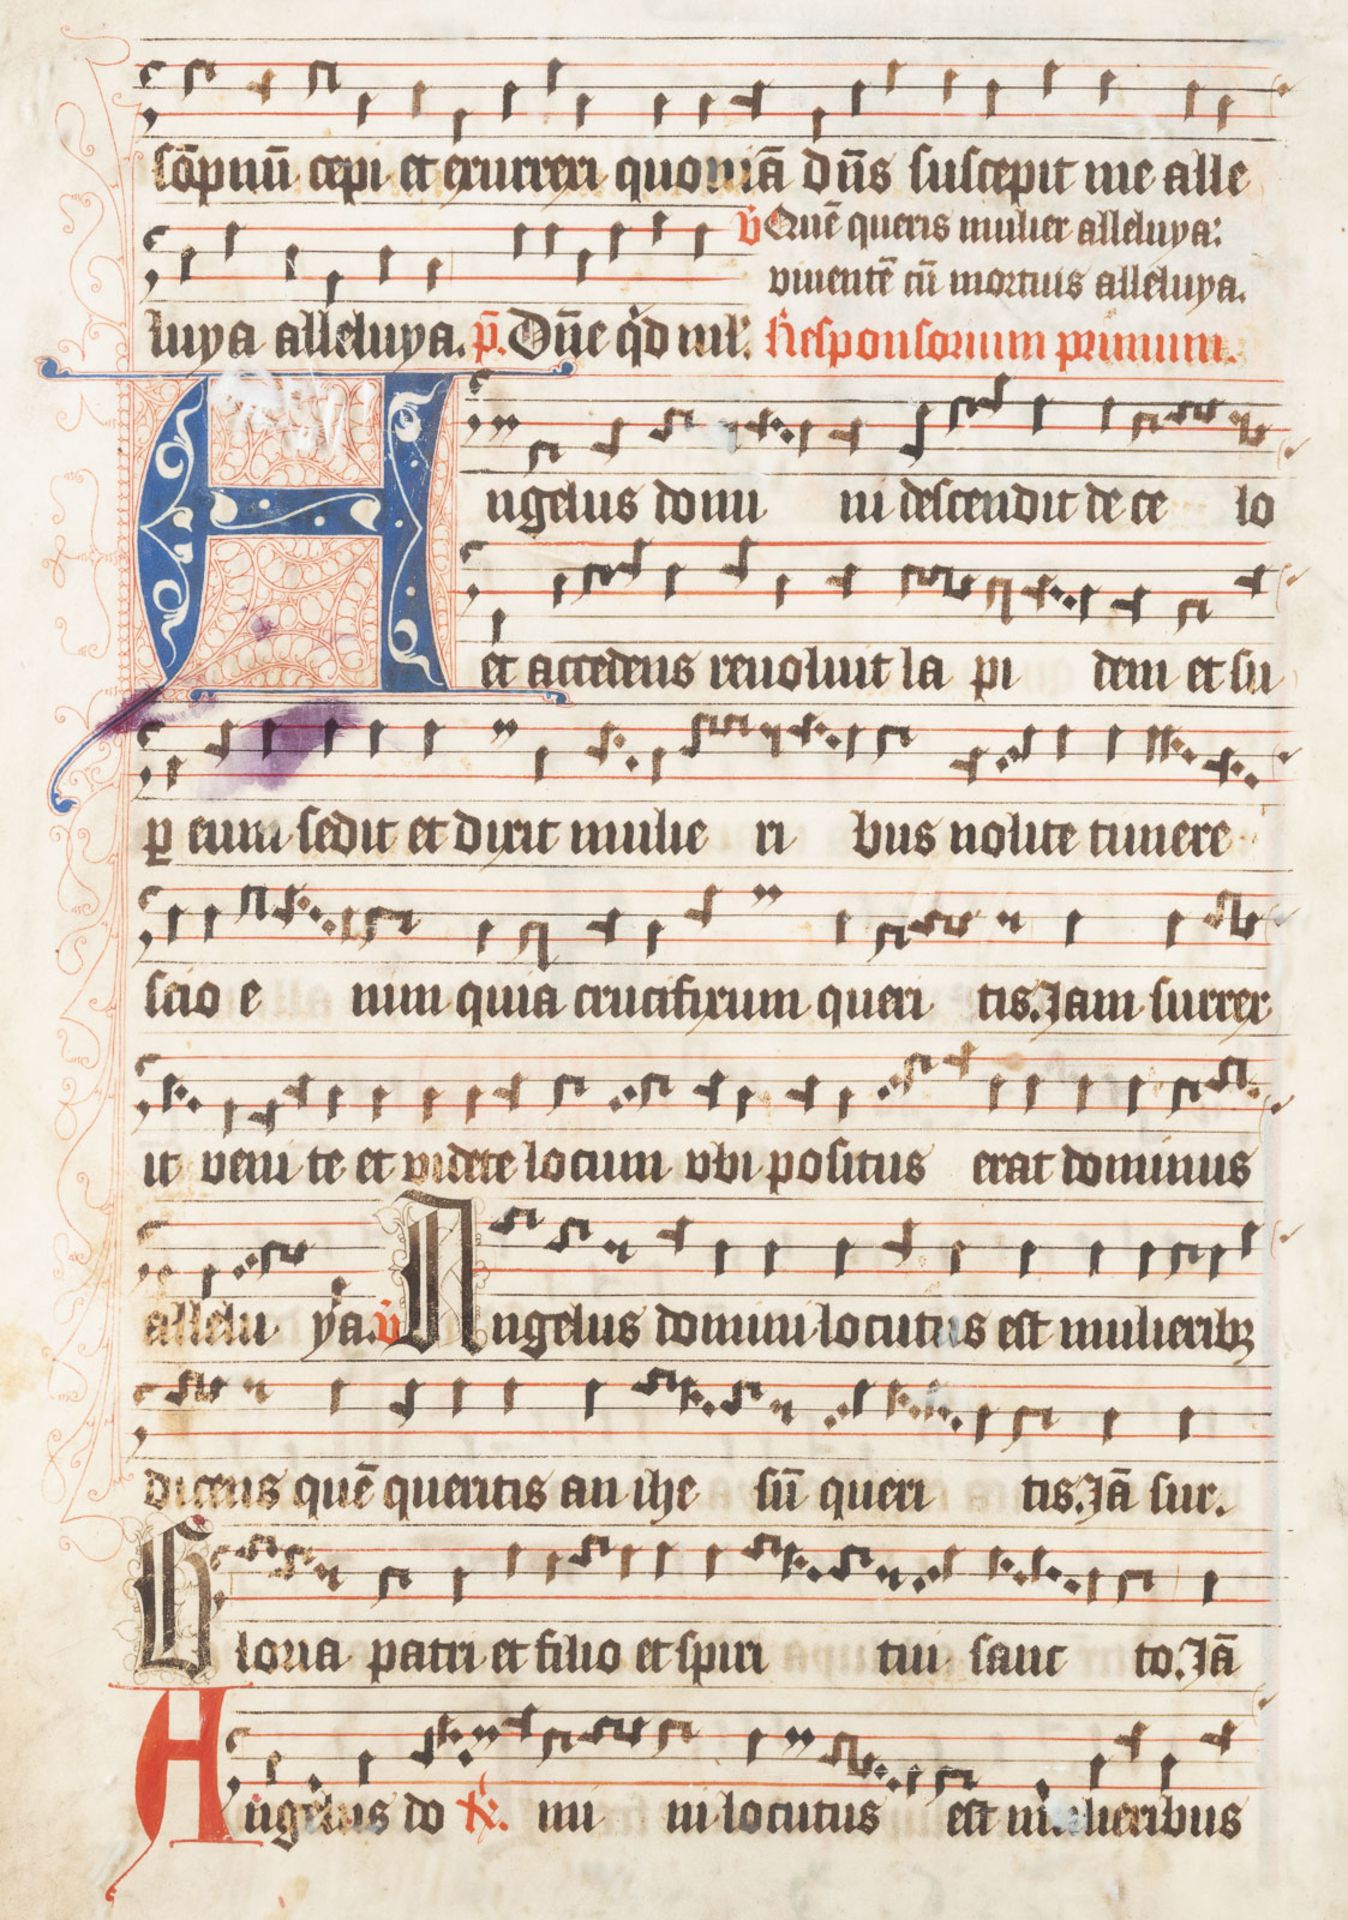 sōpnū cepi et exurrexi quoniā dn̄s suscepit me alle
v̄ Quē queris mulier alleluya:
viuentē cū mortuis alleluya.
luya alleluya. p̄. Dn̄e qͥd ml̓. Responsorium primum.
Angelus domi ni descendit de ce lo
et accedens reuoluit la pi dem et su
ꝑ eum sedit et dixit mulie ri bus nolite timere
scio e nim quia crucifixum queri tis. Iam surrex
it veni te et videte locum vbi positus erat dominus
allelu ya. v̄ Angelus domini locutus est mulieribꝫ
dicens quē queritis an ihe sū queri tis. Iā sur.
Gloria patri et filio et spiri tui sanc to. Iā
Angelus do R̄. mi ni locutus est mulieribus